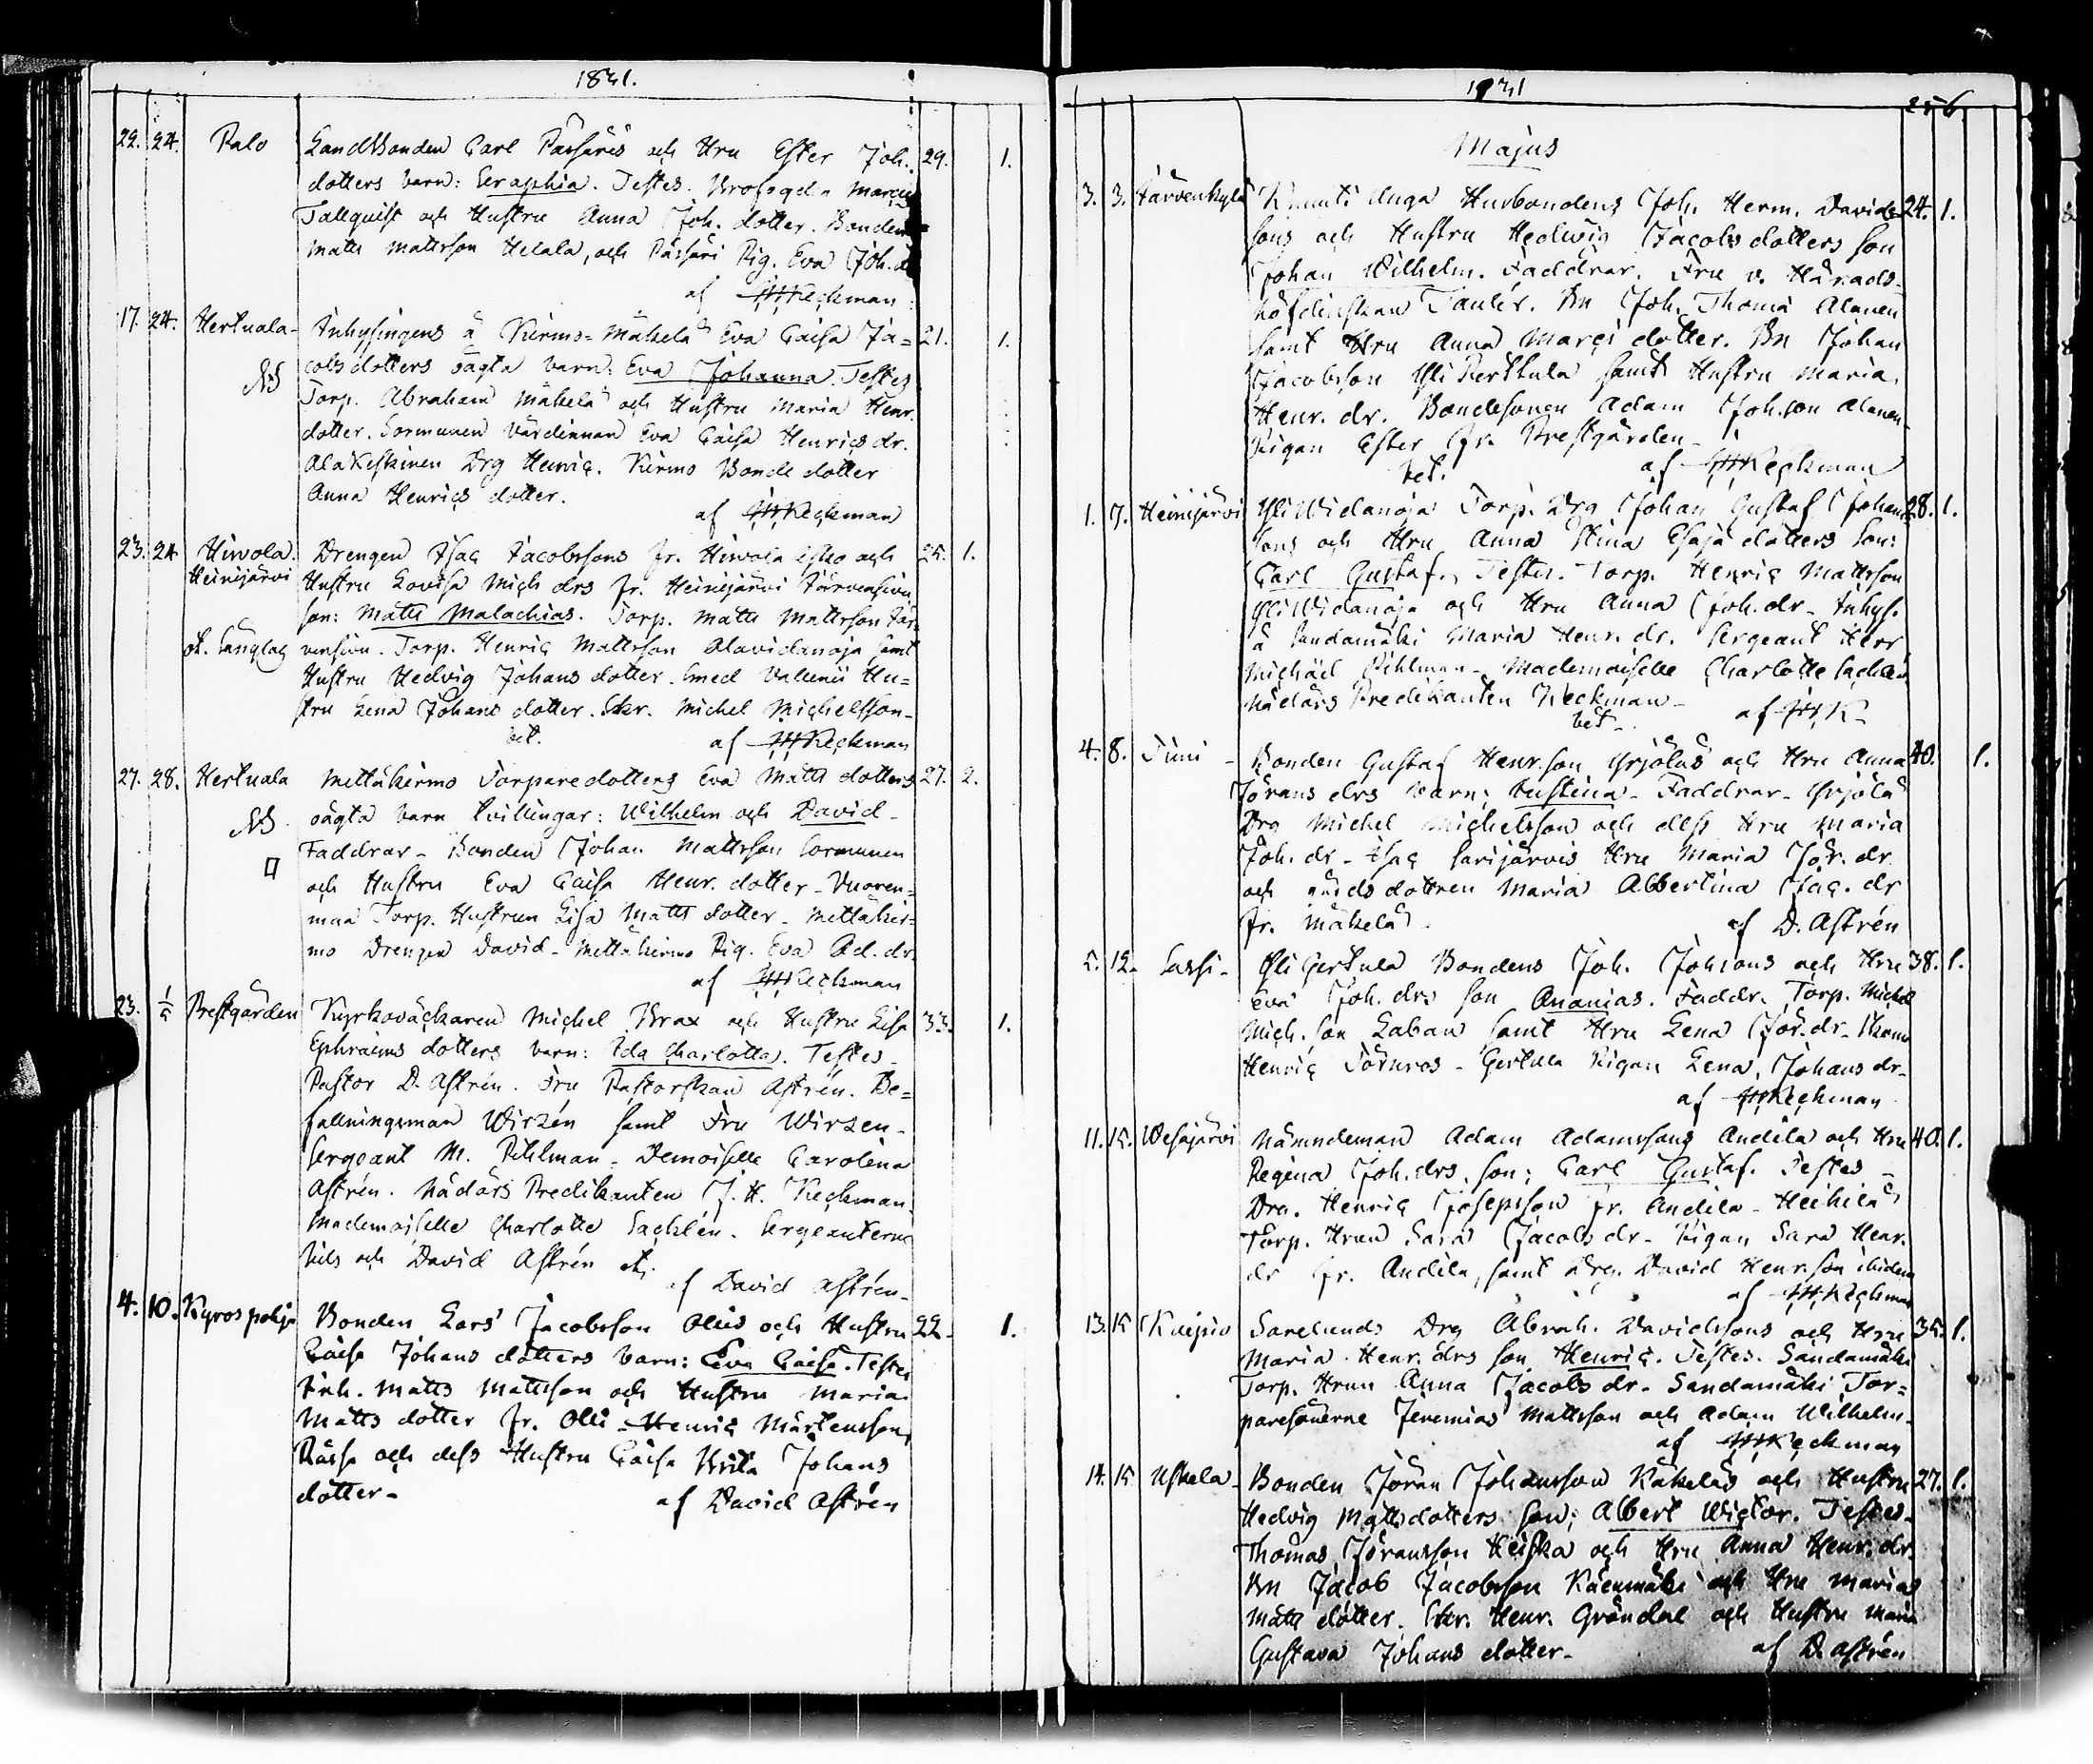 1841.
22. 24. Palo Landbonden Carl Passaris och Hru Ester Joh. 29. 1.
dotters barn: Seraphia. Testes. Brofogd.
Tallquist och Hustru Anna Joh. dotter. Bonden
Matts Mattsson Heiala, och Passari Pig. Eva Joh. d
af JHKeckman
17. 24. Hertuala Inhysingens å Kirmo-Mäkelä Eva Caisa Ja= 21. 1.
cobsdotters oägta barn: Eva Johanna. Testes
NB Torp. Abraham Mäkelä och Hustru Maria Henr.
dotter. Sormunen Värdinnan Eva Caisa Henrics dr.
Alakeskinen Drg Henric. Kirmo Bonde dotter
Anna Henrics dotter.
af JHKeckman
23. 24 Hirvola. Drengen Isac Jacobssons fr. Hirvola Esko och 25. 1.
Heinijärvi Hustru Lovisa Mich drs fr. Heinijärvi Järvensivu
son: Matts Malachias. Torp. Matts Mattsson Jär
vensivu. Torp. Henric Mattsson Alavidanoja samt
Hustru Hedvig Johans dotter. Smed Vallenii Hu=
stru Lena Johans dotter. Skr. Michel Michelsson-
bet. af JHKeckman
27. 28. Hertuala Mettäkirmo Torparedotters Eva Matts dotters 27. 2.
NB oägta barn tvillingar: Wilhelm och David-
Faddrar- Bonden Johan Mattsson Sormunen
och Hustru Eva Caisa Henr. dotter- Vuoren=
maa Torp. Hustrun Lisa Matts dotter- Mettäkir=
mo Drengen David- Mettäkirmo Pig. Eva Ad. dr.
af JHKeckman
23. 1/5 Prestgården Kyrkoväckaren Michel Brax och Hustru Lisa 33. 1.
Ephraims dotters barn: Ida Charlotta. Testes-
Pastor D. Astrén. Fru Pastorskan Astrén. Be=
fallningsman Wirzén samt Fru Wirzen-
Sergeant M. Pihlman- Demoiselle Carolina
Astrén. Nådårs Predikanten J. H. Keckman.
Mademoiselle Charlotte Sacklén. Sergeanterne
Nils och David Astrén etc.
af David Astrén-
4. 10. Kyrospohja Bonden Lars Jacobsson Ollis och Hustru 22- 1.
Caisa Johans dotters barn: Eva Caisa. Testes
Inh. Matts Mattsson och Hustru Maria
Matts dotter fr. Olli- Henric Mårtensson
Pässä och dess Hustru Caisa Brita Johans
dotter- af David Astrén
1841
256
Majus
3. 3. Järvenkylä Knuuti unga Husbondens Joh. Herm. Davids 24. 1.
sons och Hustru Hedwig Jacobs dotters son
Johan Wilhelm. Faddrar. Fru v. Härads-
höfdinskan Taulér. Bn Joh. Thomæ Alanen
samt Hru Anna Marci dotter. Bn Johan
Jacobsson Yli Perttula samt Hustru Maria
Henr. dr. Bondesonen Adam Joh.son Alanen-
Pigan Ester fr. Prestgården-
bet. af JHKeckman
1. 7. Heinijärvi YliWidanoja Torp. Drg Johan Gustaf Johans 28. 1.
sons och Hru Anna Stina Esaiæ dotters son:
Carl Gustaf. Testes. Torp. Henric Mattsson
YliWidanoja och Hru Anna Joh. dr- Inhys.
å Sandamäki Maria Henr. dr. Sergeant Herr
Michael Pihlman- Mademoiselle Charlotte Sacklén
Nådårs Predikanten Keckman-
bet- af JHK-
4. 8. Timi- Bonden Gustaf Henr.son Yrjölas och Hru Anna 40. 1.
Jörans drs barn; Justina- Faddrar- Yrjölä
Drg Michel Michelsson och dess Hru Maria
Joh. dr- Isac Sarijärvis Hru Maria Jör. dr
och dottren Maria Albertina Jac. dr
fr. Mäkelä. af D. Astrén
5. 12- Sassi- Yli Gertula Bondens Joh. Johans och Hru 38. 1.
Eva Joh. drs son Ananias. Faddr. Torp. Michel
Mich. son Laban samt Hru Lena Jör. dr-
Henric Törnros- Gertula Pigan Lena Johans dr-
af JHKeckman
11. 15. Wesajärvi Nämndeman Adam Adamssons Andila och Hru 40. 1.
Regina Joh. drs. son: Carl Gustaf. Testes-
Drg. Henric Josepsson fr. Andila- Heikilä
Torp. Hrun Sara Jacobs dr- Pigan Sara Henr.
dr fr. Andila, samt Drg. David Henr. son ibidem
af JHKeckman
13. 15 Kuijvis Sarelunds Drg Abrah. Davidssons och Hru 35. 1.
Maria Henr. drs son Henric. Testes. Sandamäki
Torp. Hrun Anna Jacobs dr- Sandamäki Tor=
paresönerne Jeremias Mattsson och Adam Wilhelm-
af JHKeckman
14. 15 Uskela- Bonden Jöran Johansson Käkeläs och Hustru 27. 1.
Hedvig Mattsdotters son; Albert Wictor. Testes-
Thomas Jöransson Heiska och Hru Anna Henr. dr.
Bn Jacob Jacobsson Käenmäki och Hru Maria
Matts dotter. Skr. Henr. Gröndal och Hustru Maria
Gustava Johans dotter- af D. Astrén